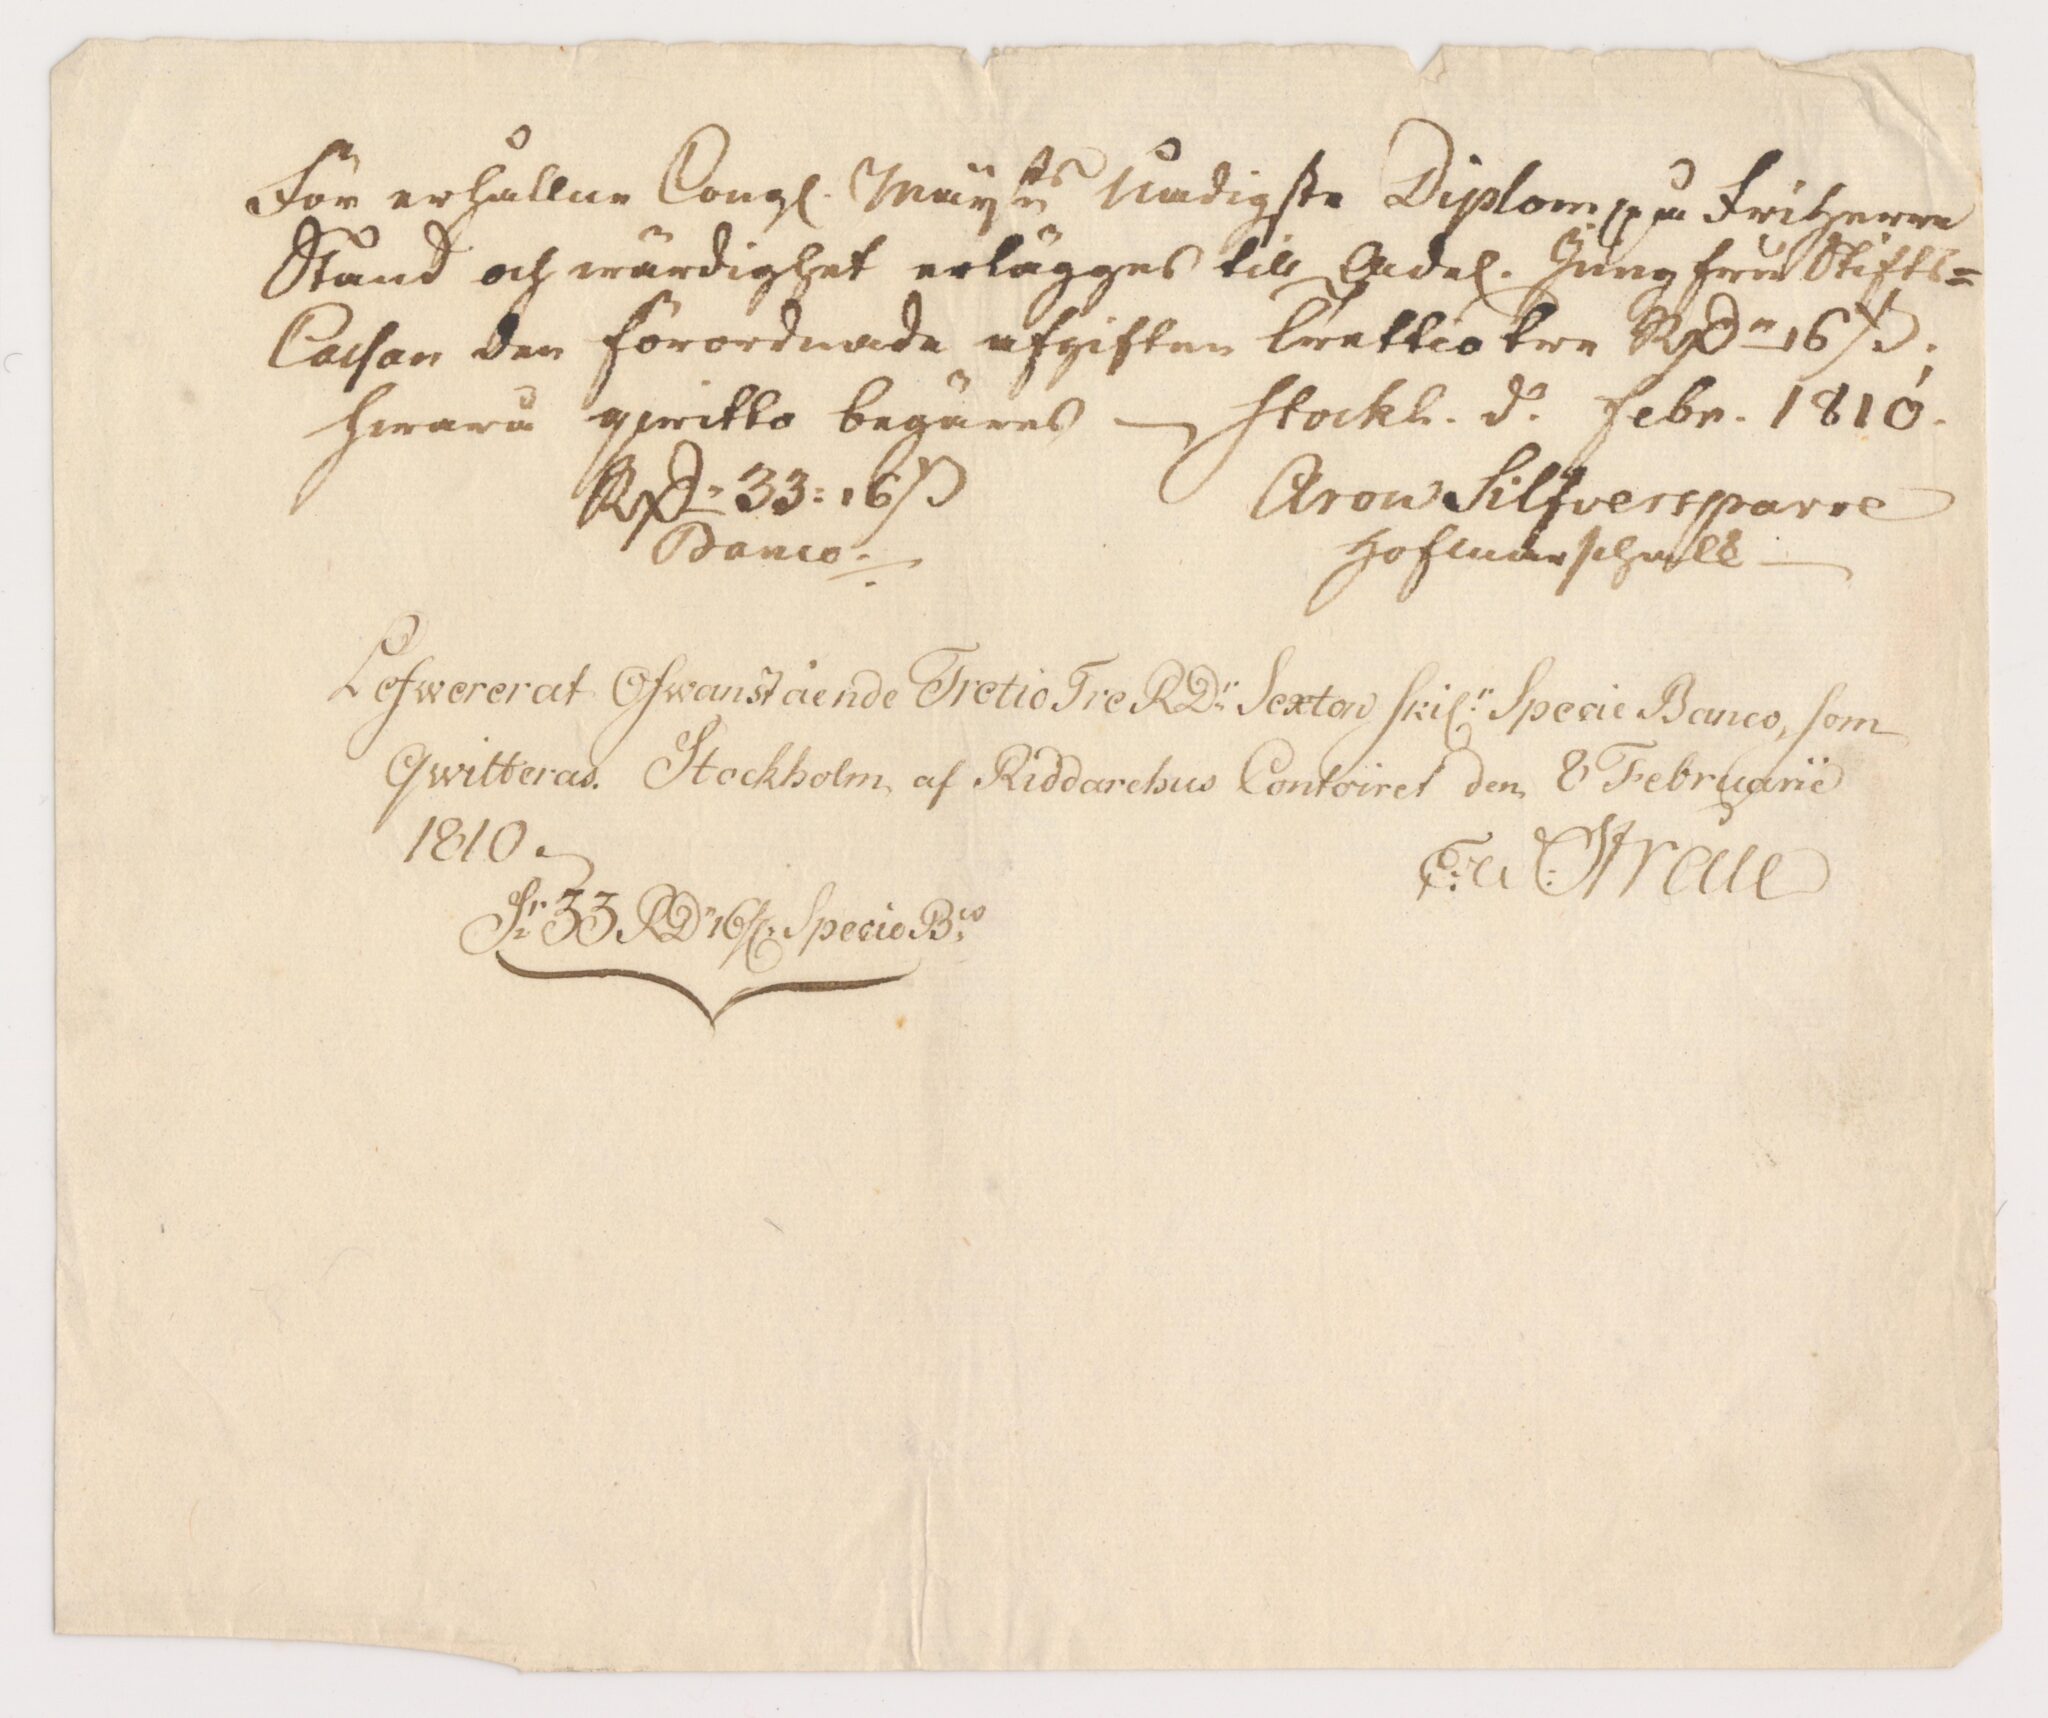 För erhållne Congl. Maÿ:ts Nådigste Diplom på FriHerre
Stånd och wärdighet erlägges till Adel. Jungfru Stifts=
Cassan den förordnade afgiften Trettio tre RD:r 16 ß;
hwarå qvitto begäres — Stockh. d. Febr. 1810.
RD:r 33: 16 ß
Banco.
Aron Silfversparre
Hofmarschall
Lefwererat Ofwanstående Tretio Tre RD:r Sexton skil:r Specie Banco, som
Qwitteras. Stockholm af Riddarehus Contoiret den 8 Februarii
1810.
S:r 33 RD:r 16 ß. Specie B:co